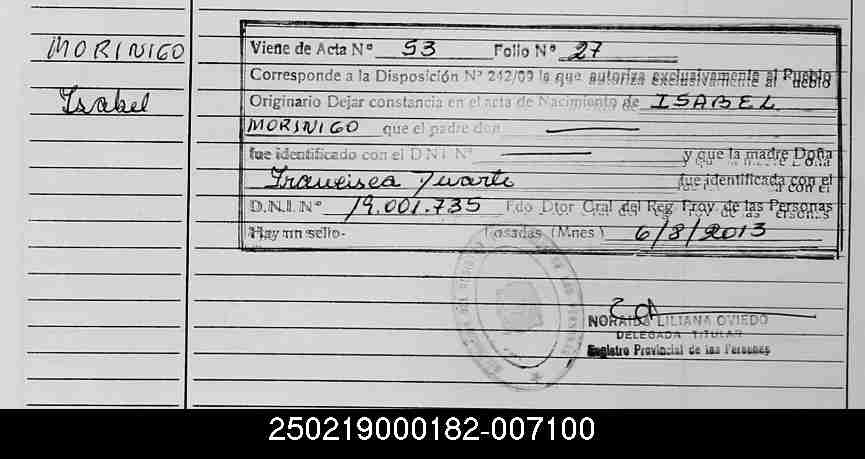 MORINIGO
Isabel
Viene de Acta Nº 53 Folio Nº 27
Corresponde a la Disposición Nº 242/09 la que autoriza exclusivamente al Pueblo
Originario Dejar constancia en el acta de Nacimiento de ISABEL
MORINIGO que el padre don
fue identificado con el D.N.I. Nº y que la madre Doña
Francisca Duarte fue identificada con el
D.N.I. Nº 19.001.735 Fdo Dtor Gral del Reg Prov de las Personas
Hay un sello- Posadas (Mnes.) 6/8/2013
NORAIDA LILIANA OVIEDO
DELEGADA TITULAR
Registro Provincial de las Personas
250219000182-007100